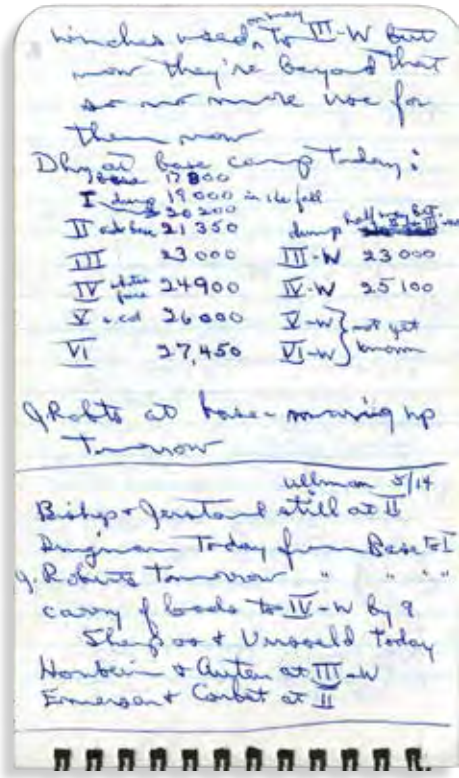 winches used on way to III-W but
now they're beyond that
so no more use for
them now
Dhg at base camp today:
base 17800
I dump 19000 in the fall
20200
II adv base 21350 dump half way bet.
III 23000 III-W 23000
IV 24900 IV-W 25100
V s.col 26000 V-W } not yet
VI 27,450 VI-W } known
J Robts at base - moving up
Tomorrow
Ullman 5/14
Bishop + Jerstand still at II
Dingman Today from Base to I
J. Roberts Tomorrow " " " "
carry of loads to IV-W by 9
Sherpas + Unsoeld today
Hornbein + Auten at III-W
Emerson + Corbet at II